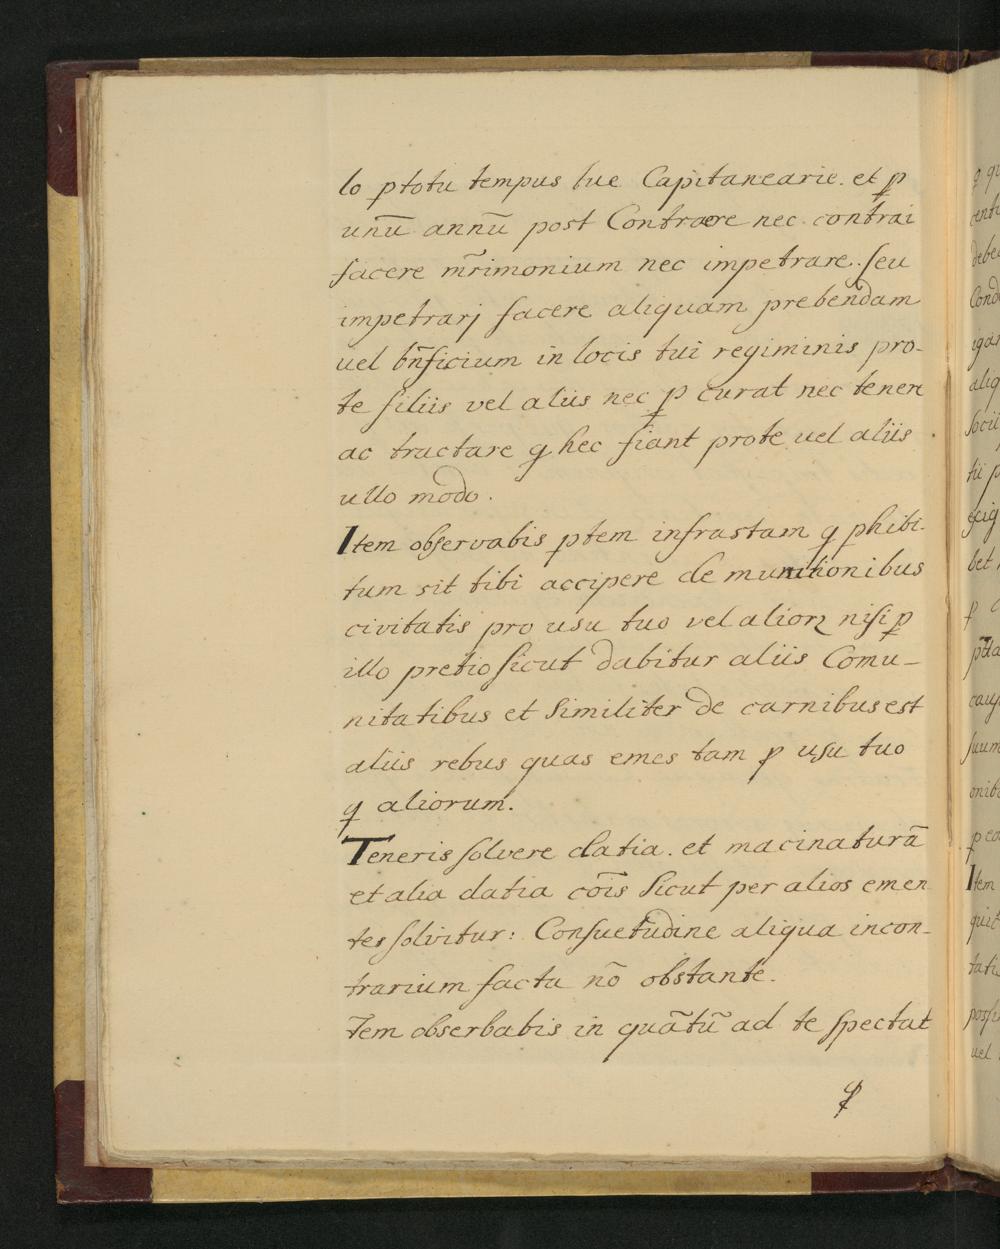 lo ꝑ totu tempus tue Capitanearie. et ꝑ
unū annū post Contraere nec contrai
facere m̄rimonium nec impetrare. seu
impetrarj facere aliquam prebendam
uel bn̄ficium in locis tui regiminis pro-
te filiis vel aliis nec ꝑ curat nec tenere
ac tractare ꝙ hec fiant prote uel aliis
ullo modo.
Item observabis ptem infrastam ꝙ phibi-
tum sit tibi accipere de munitionibus
civitatis pro usu tuo vel alioꝝ nisi ꝑ
illo pretio sicut dabitur aliis Comu-
nitatibus et Similiter de carnibus est
aliis rebus quas emes tam ꝓ usu tuo
ꝙ aliorum.
Teneris solvere datia. et macinaturā
et alia datia cōis Sicut per alios emen
tes solvitur: Consuetudine aliqua incon-
trarium factu nō obstante.
Tem obserbabis in quātū ad te spectat
ꝙ